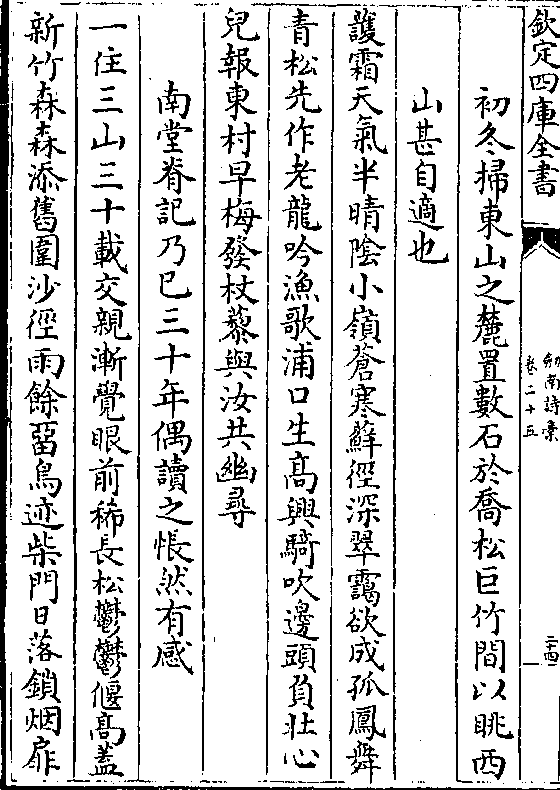 欽定四庫全書
劍南詩稾
卷二十五
二十四
初冬掃東山之麓置數石於喬松巨竹間以眺西
山甚自適也
護霜天氣半晴陰小嶺蒼寒蘚徑深翠靄欲成孤鳳舞
青松先作老龍吟漁歌浦口生髙興騎吹邊頭負壯心
兒報東村早梅發杖藜與汝共幽尋
南堂脊記乃已三十年偶讀之悵然有感
一住三山三十載交親漸覺眼前稀長松鬱鬱偃髙蓋
新竹森森添舊圍沙徑雨餘留鳥迹柴門日落鎖烟扉